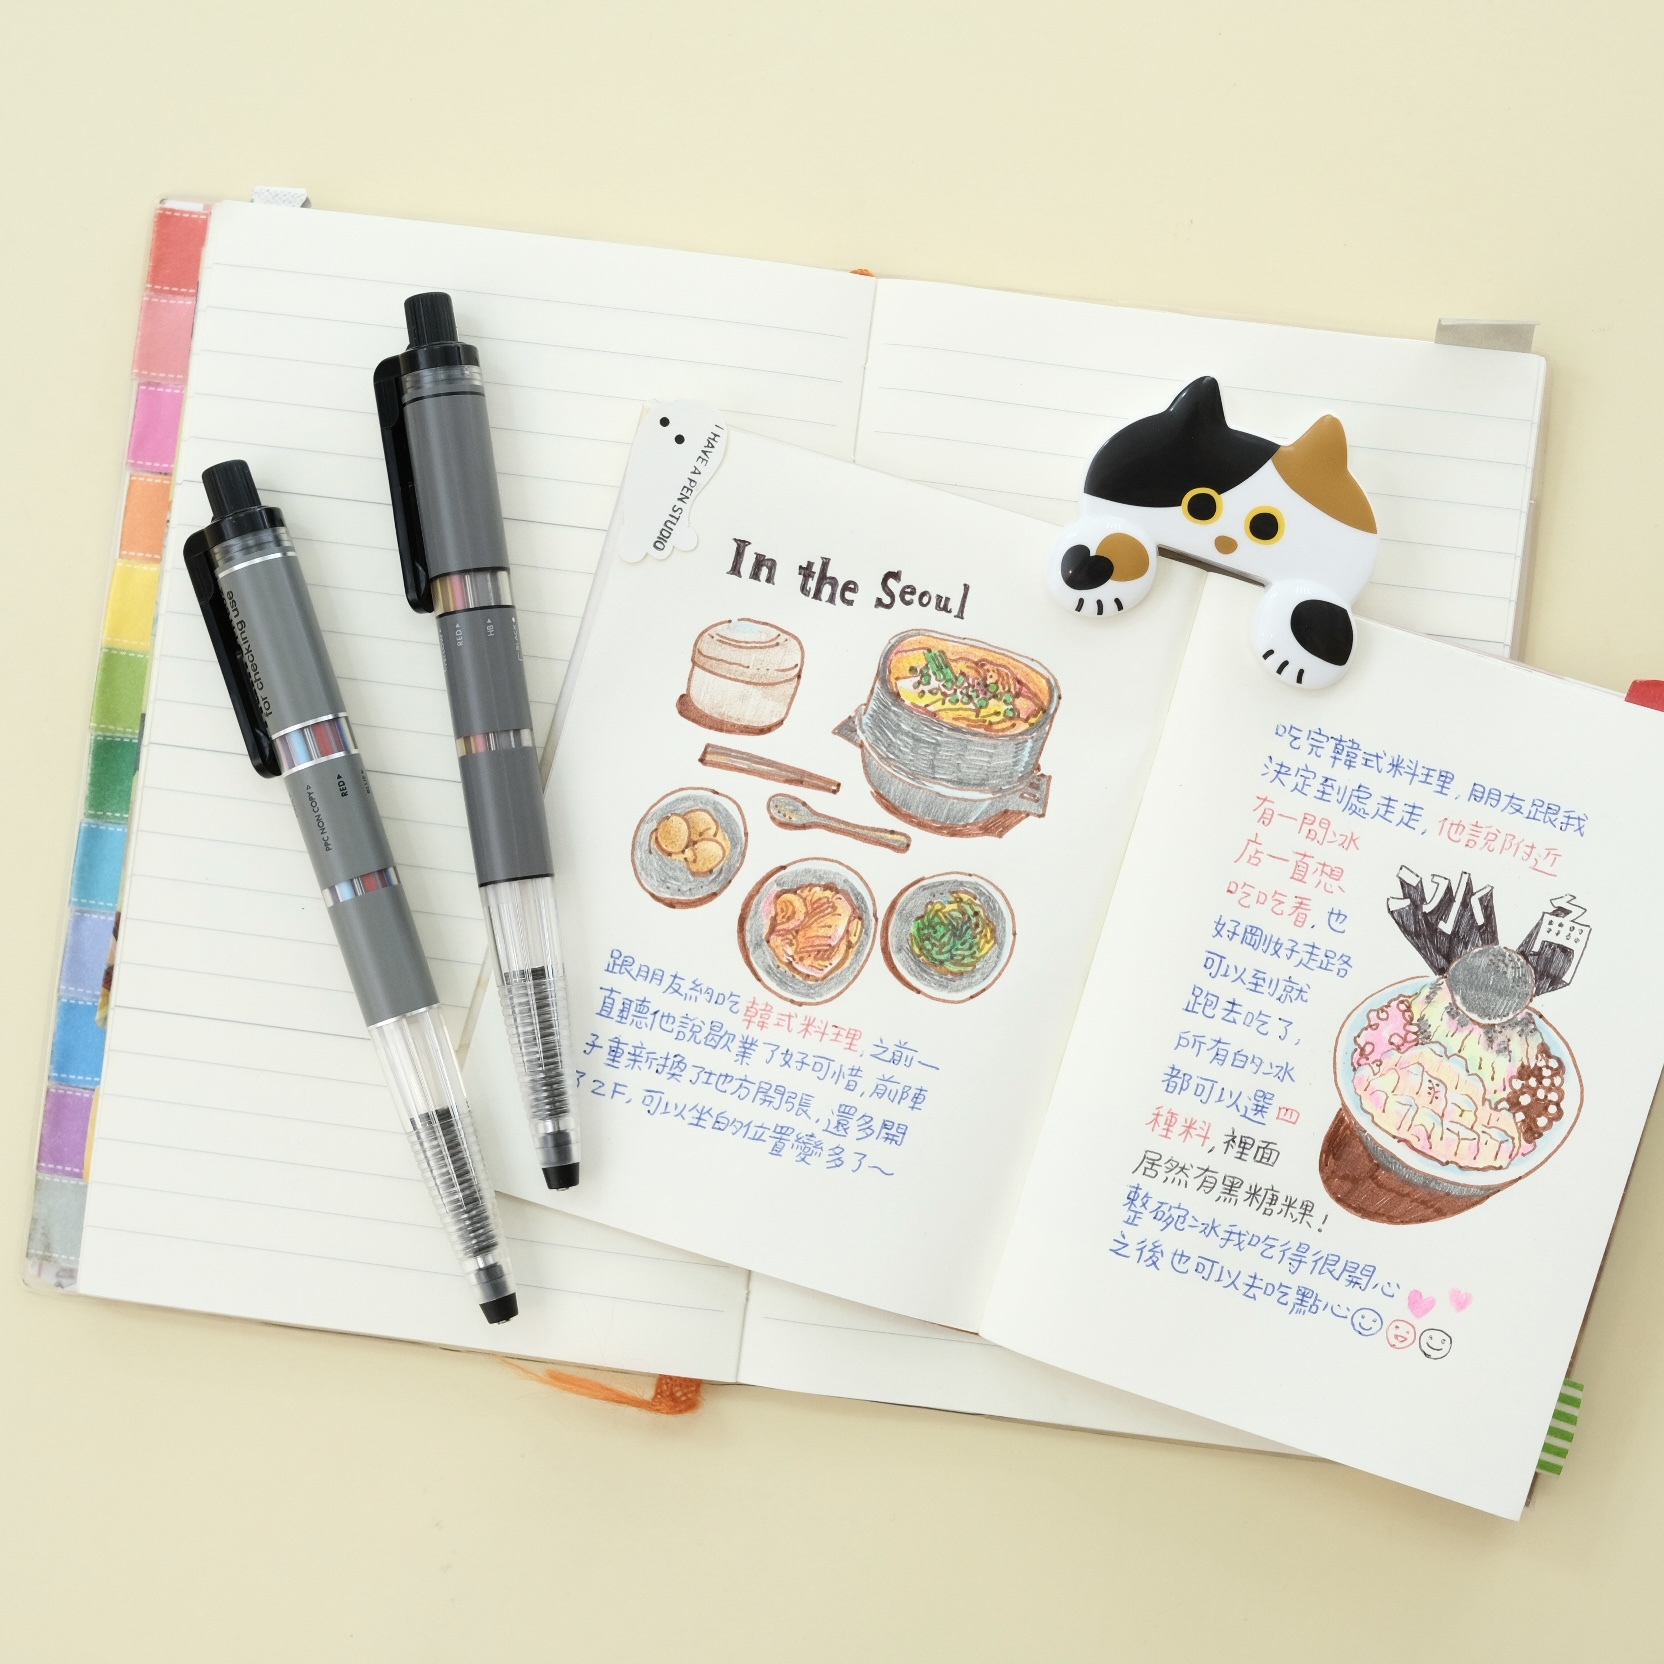 I HAVE A PEN STUDIO
In the Seoul
跟朋友約吃韓式料理,之前一
直聽他說歇業了好可惜,前陣
子重新換了地方開張,還多開
了2F,可以坐的位置變多了~
吃完韓式料理,朋友跟我
決定到處走走,他說附近
有一間冰
店一直想
吃吃看,也
好剛好走路
可以到就
跑去吃了,
所有的冰
都可以選四
種料,裡面
居然有黑糖粿!
整碗冰我吃得很開心
之後也可以去吃點心
冰
for checking use
RED
PPC NON COPY
RED
HB